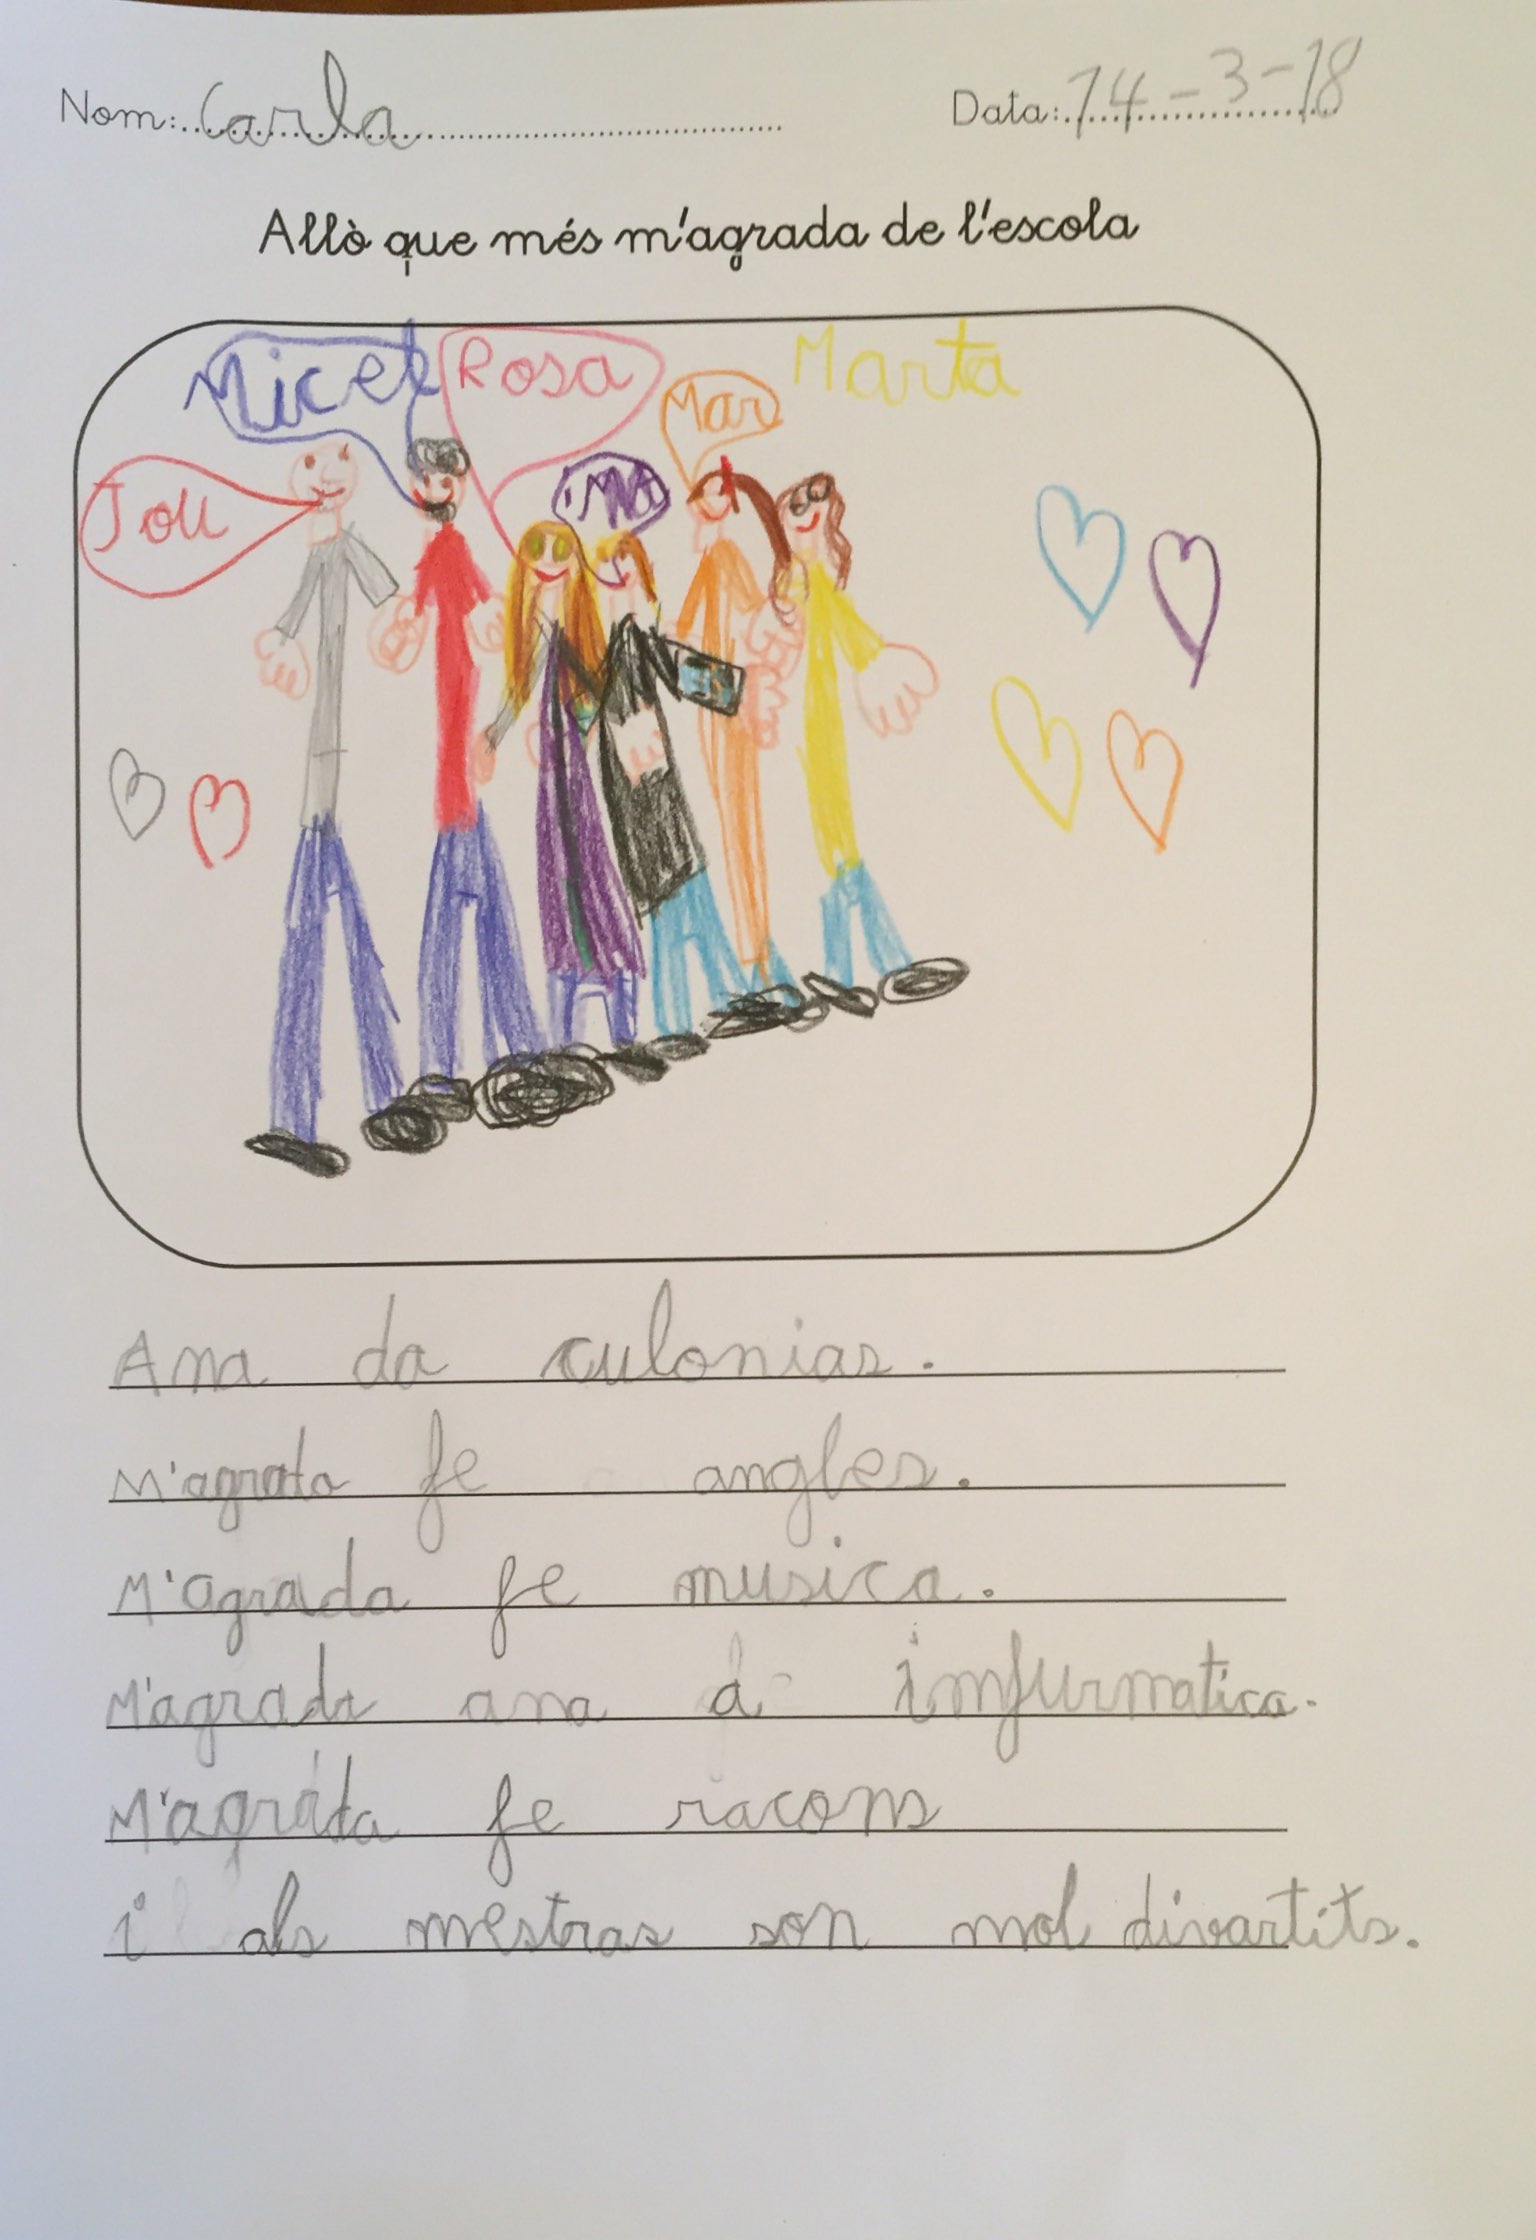 Nom: Carla Data: 14-3-18
Allò que més m'agrada de l'escola
Micel Rosa Mar Marta
Jou iMa
Ana da culonias.
M'agrata fe angles.
M'agrada fe musica.
M'agrada ana a infurmatica.
M'agrata fe racons
i als mestras son mol divartits.